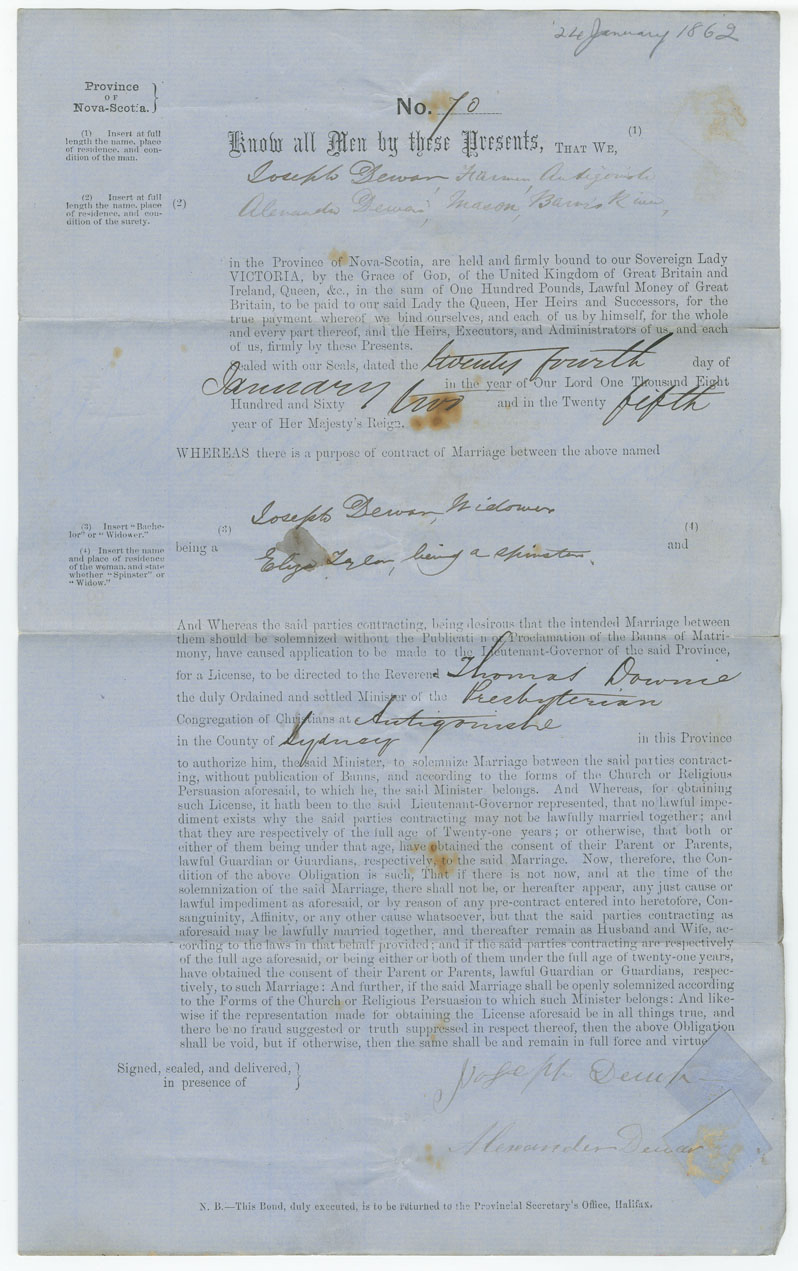 24 January 1862
Province
OF
Nova-Scotia.
No. 70
(1) Insert at full
length the name, place
of residence, and con-
dition of the man.
Know all Men by these Presents, THAT WE, (1)
Joseph Dewar, Farmer Antigonish
(2) Insert at full
length the name, place
of residence, and con-
dition of the surety.
(2) Alexander Dewar, Mason, Barneys River,
in the Province of Nova-Scotia, are held and firmly bound to our Sovereign Lady
VICTORIA, by the Grace of GOD, of the United Kingdom of Great Britain and
Ireland, Queen, &c., in the sum of One Hundred Pounds, Lawful Money of Great
Britain, to be paid to our said Lady the Queen, Her Heirs and Successors, for the
true payment whereof we bind ourselves, and each of us by himself, for the whole
and every part thereof, and the Heirs, Executors, and Administrators of us, and each
of us, firmly by these Presents.
Sealed with our Seals, dated the twenty fourth day of
January in the year of Our Lord One Thousand Eight
Hundred and Sixty two and in the Twenty fifth
year of Her Majesty's Reign.
WHEREAS there is a purpose of contract of Marriage between the above named
(3) Insert "Bache-
lor" or "Widower."
(3) Joseph Dewar, Widower
(4) Insert the name
and place of residence
of the woman, and state
whether "Spinster" or
"Widow."
being a and (4)
Eliza Taylor, being a spinster.
And Whereas the said parties contracting, being desirous that the intended Marriage between
them should be solemnized without the Publicati n or Proclamation of the Banns of Matri-
mony, have caused application to be made to the Lieutenant-Governor of the said Province,
for a License, to be directed to the Reverend Thomas Downie
the duly Ordained and settled Minister of the Presbyterian
Congregation of Christians at Antigonishe
in the County of Sydney in this Province
to authorize him, the said Minister, to solemnize Marriage between the said parties contract-
ing, without publication of Banns, and according to the forms of the Church or Religious
Persuasion aforesaid, to which he, the said Minister belongs. And Whereas, for obtaining
such License, it hath been to the said Lieutenant-Governor represented, that no lawful impe-
diment exists why the said parties contracting may not be lawfully married together; and
that they are respectively of the full age of Twenty-one years; or otherwise, that both or
either of them being under that age, have obtained the consent of their Parent or Parents,
lawful Guardian or Guardians, respectively, to the said Marriage. Now, therefore, the Con-
dition of the above Obligation is such, That if there is not now, and at the time of the
solemnization of the said Marriage, there shall not be, or hereafter appear, any just cause or
lawful impediment as aforesaid, or by reason of any pre-contract entered into heretofore, Con-
sanguinity, Affinity, or any other cause whatsoever, but that the said parties contracting as
aforesaid may be lawfully married together, and thereafter remain as Husband and Wife, ac-
cording to the laws in that behalf provided; and if the said parties contracting are respectively
of the full age aforesaid, or being either or both of them under the full age of twenty-one years,
have obtained the consent of their Parent or Parents, lawful Guardian or Guardians, respec-
tively, to such Marriage: And further, if the said Marriage shall be openly solemnized according
to the Forms of the Church or Religious Persuasion to which such Minister belongs: And like-
wise if the representation made for obtaining the License aforesaid be in all things true, and
there be no fraud suggested or truth suppressed in respect thereof, then the above Obligation
shall be void, but if otherwise, then the same shall be and remain in full force and virtue.
Signed, sealed, and delivered,
in presence of
Joseph Dewar
Alexander Dewar
N. B.—This Bond, duly executed, is to be returned to the Provincial Secretary's Office, Halifax.